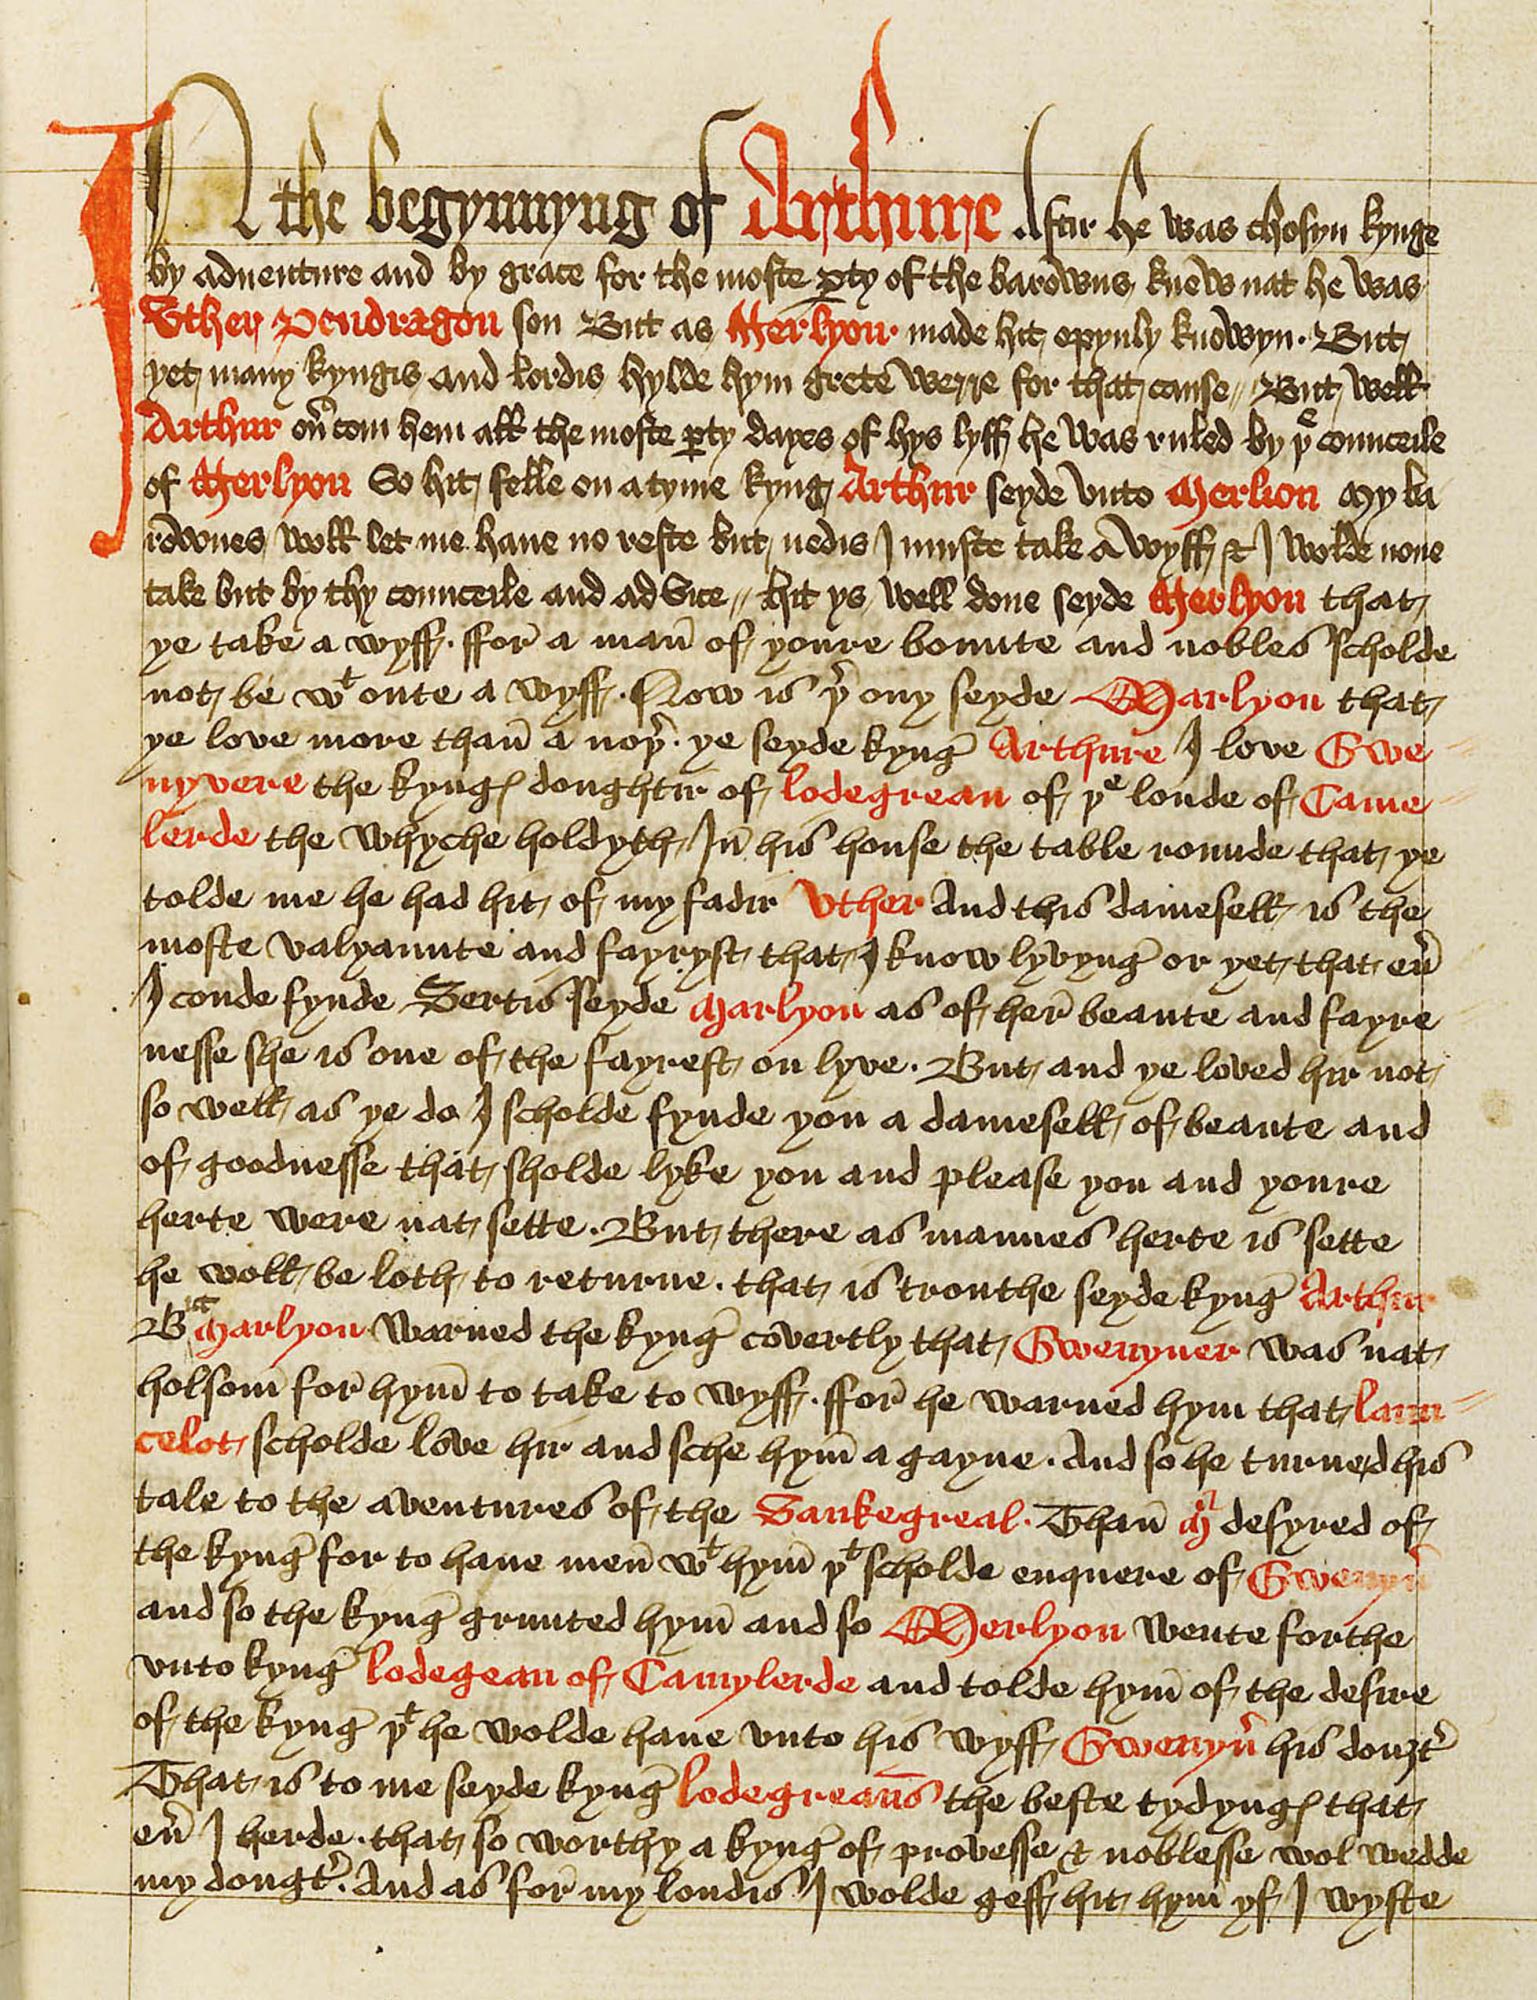 IN the begynnyng of Arthure Aftir he was chosyn kynge
by aduenture and by grace for the moste ꝑty of the barowns knew nat he was
Vther Pendragon son But as Merlyon made hit opynly knowyn. But
yet many kyngis and lordis hylde hym grete werre for that cause // But well
Arthur oũcom hem all the moste ꝑty dayes of hys lyff he was ruled by þͤ counceile
of Merlyon So hit felle on a tyme kyng Arthur seyde vnto Merlion My ba
rownes woll let me haue no reste but nedis I muste take a wyff & I wolde none
take but by thy counceile and advice // hit ys well done seyde Merlyon that
ye take a wyff. ffor a man̄ of youre bounte and nobles scholde
not be wᵗ onte a wyff. Now is þ̾ ony seyde Marlyon that
ye love more than̄ a noþ̾. ye seyde kyng Arthure I love Gwe
nyvere the kyngꝭ doughtir of lodegrean of þͤ londe of Came
lerde the whyche holdyth In̄ his house the table rounde that ye
tolde me he had hit of my fadir Vther And this damesell is the
moste valyaunte and fayryst that I know lyvyng or yet that eũ
I coude fynde Sertis seyde Marlyon as of her beaute and fayre
nesse she is one of the fayrest on lyve. But and ye loved hir not
so well as ye do I scholde fynde you a damesell of beaute and
of goodnesse that sholde lyke you and please you and youre
herte were nat sette. But there as mannes herte is sette
he woll be loth to returne. that is trouthe seyde kyng Arthur
Bᵘᵗ Marlyon warned the kyng covertly that Gwenyuer was nat
holsom̄ for hym̄ to take to wyff. ffor he warned hym that laun
celot scholde love hir and sche hym̄ a gayne. And so he turned his
tale to the aventures of the Sankegreal. Than̄ M̾ desyred of
the kyng for to haue men̄ wᵗ hym̄ þᵗ scholde enquere of Gwenyũ
and so the kyng grunted hym̄ and so Merlyon wente forthe
vnto kyng lodegean of Camylerde and tolde hym̄ of the desire
of the kyng þᵗ he wolde haue vnto his wyff Gwenyũ his douȝt̾
That is to me seyde kyng lodegreaūs the beste tydyngꝭ that
eũ I herde. that so worthy a kyng of provesse & noblesse wol wedde
my dougt̾. And as for my londis I wolde geff hit hym̄ yf I wyste